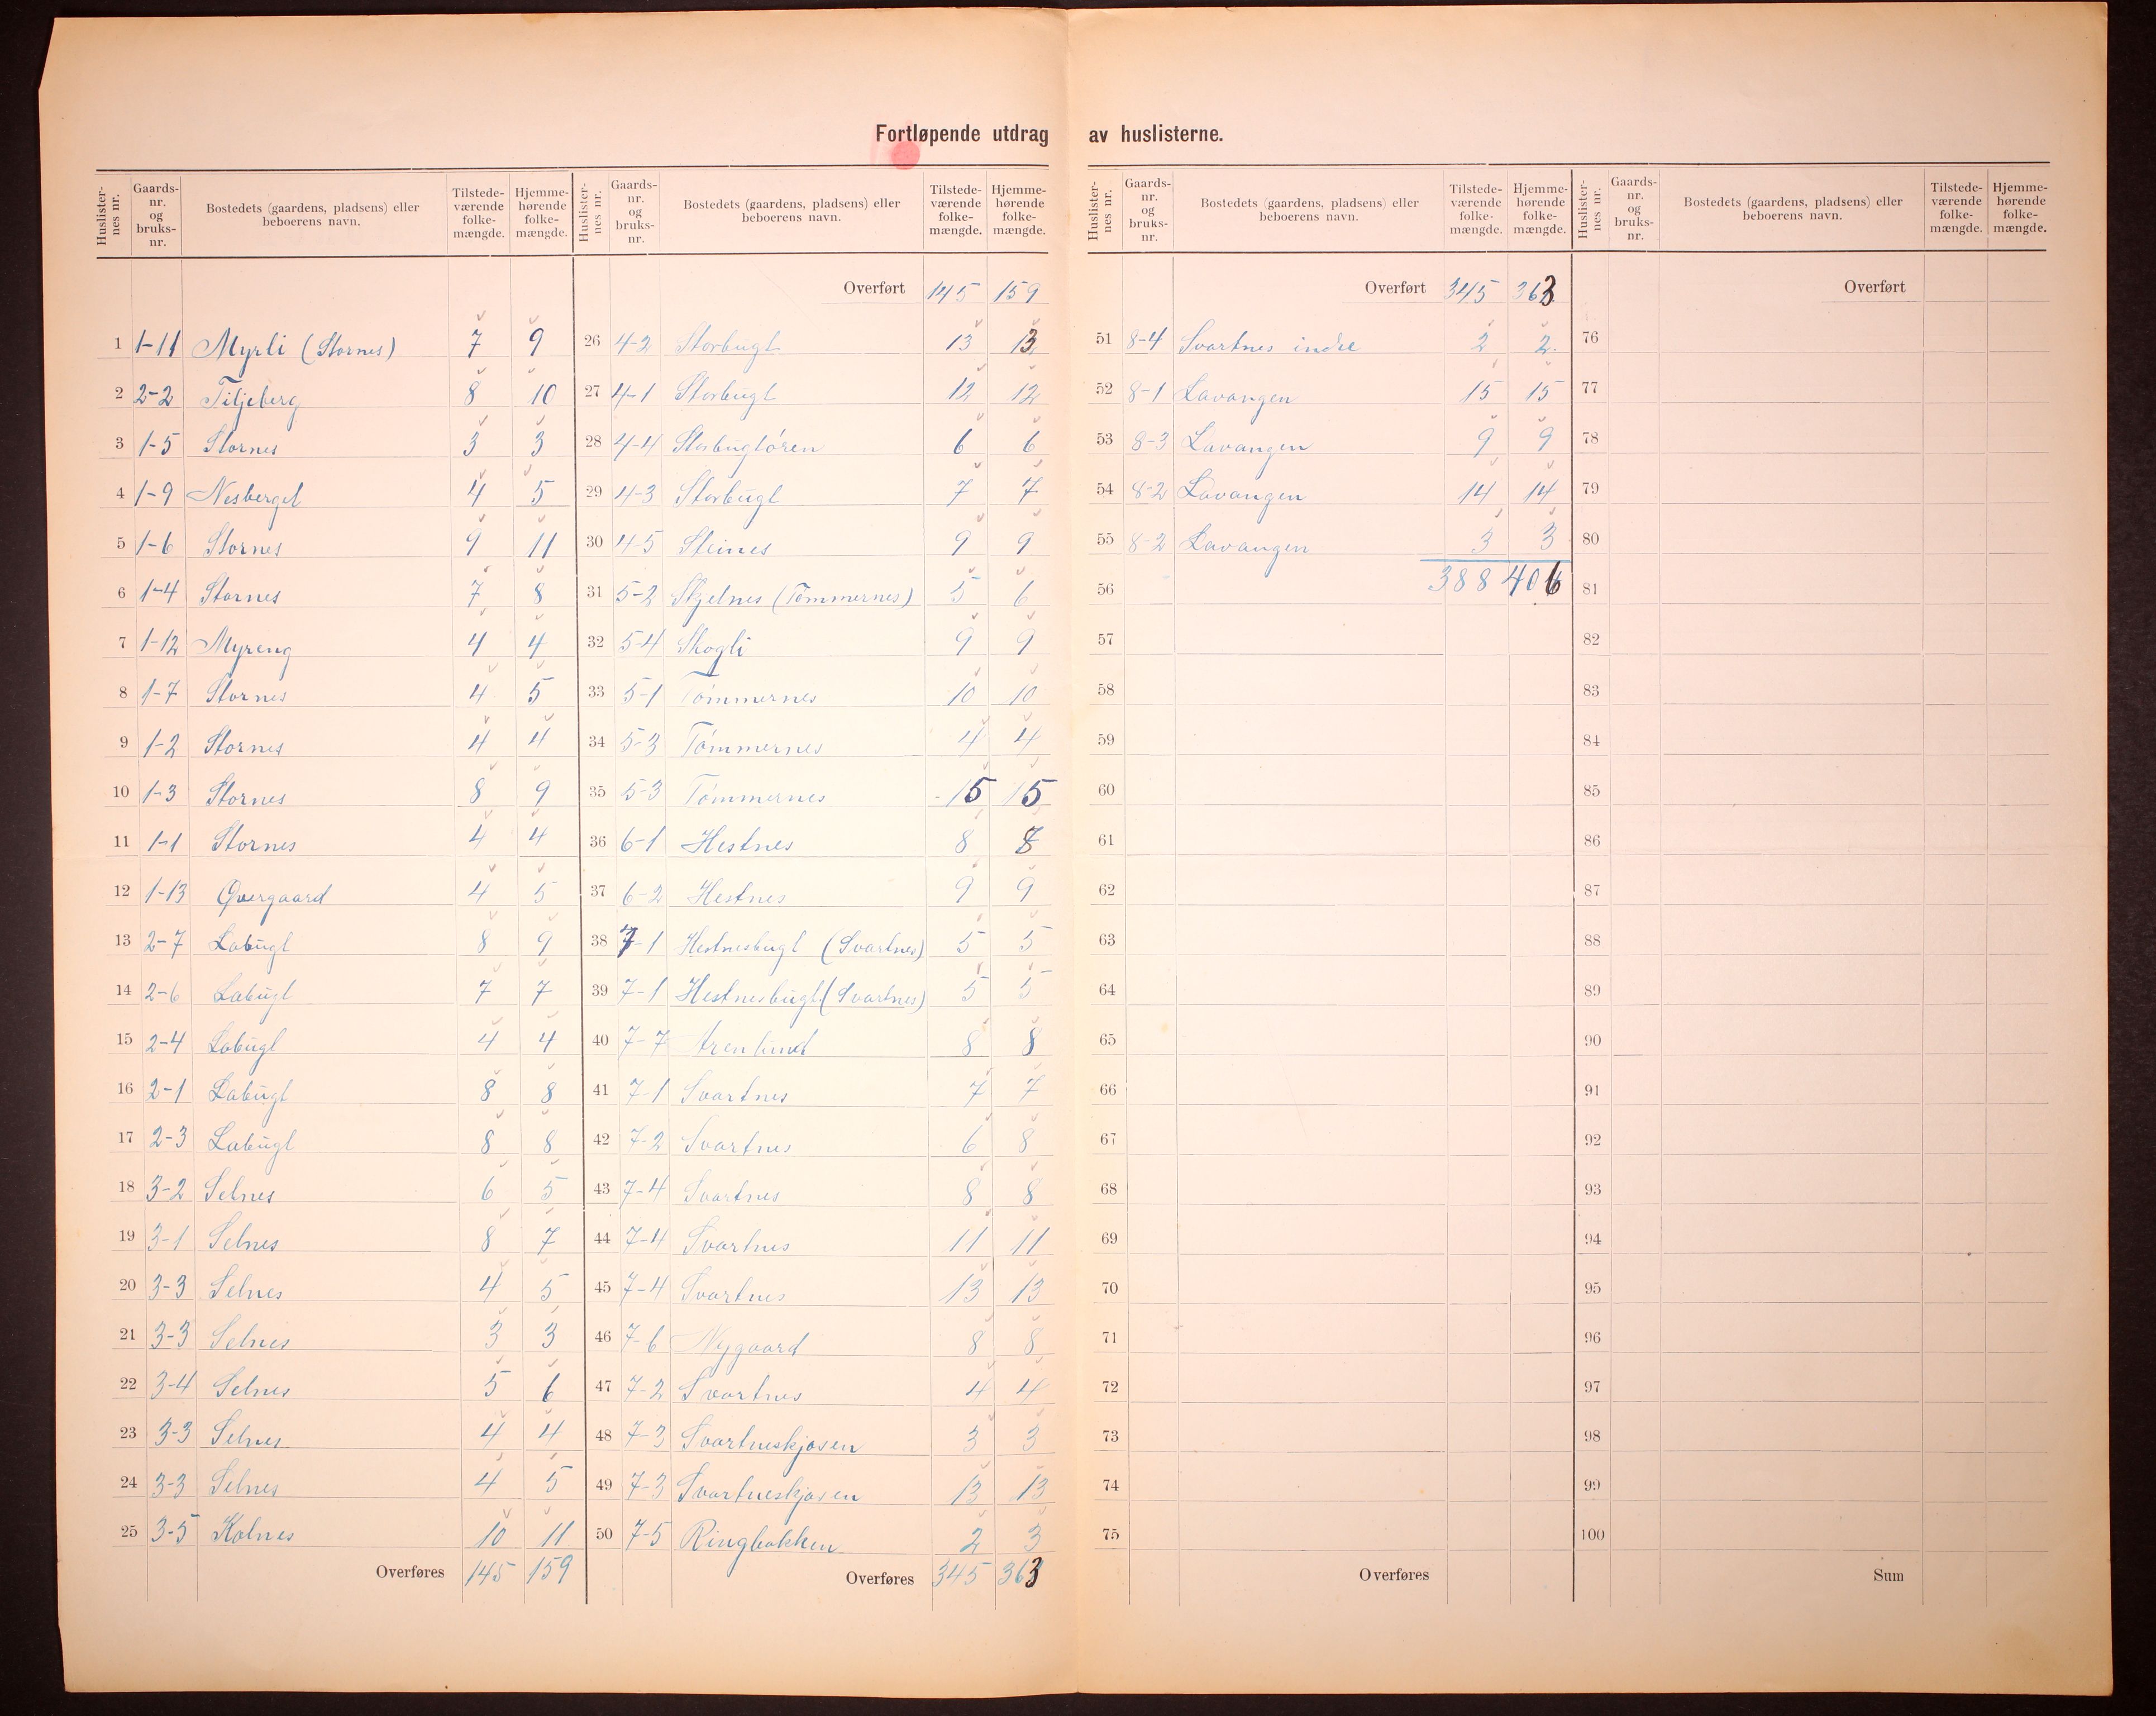 Fortløpende utdrag av huslisterne.
Huslister-nes nr. | Gaards-nr. og bruks-nr. | Bostedets (gaardens, pladsens) eller beboerens navn. | Tilstede-værende folke-mængde. | Hjemme-hørende folke-mængde.
1 1-11 Myrli (Stornes) 7 9
2 2-2 Tiljeberg 8 10
3 1-5 Stornes 3 3
4 1-9 Nesberget 4 5
5 1-6 Stornes 9 11
6 1-4 Stornes 7 8
7 1-12 Myreng 4 4
8 1-7 Stornes 4 5
9 1-2 Stornes 4 4
10 1-3 Stornes 8 9
11 1-1 Stornes 4 4
12 1-13 Øvergaard 4 5
13 2-7 Labugt 8 9
14 2-6 Labugt 7 7
15 2-4 Labugt 4 4
16 2-1 Labugt 8 8
17 2-3 Labugt 8 8
18 3-2 Selnes 6 5
19 3-1 Selnes 8 7
20 3-3 Selnes 4 5
21 3-3 Selnes 3 3
22 3-4 Selnes 5 6
23 3-3 Selnes 4 4
24 3-3 Selnes 4 5
25 3-5 Kolnes 10 11
Overføres 145 159
Huslister-nes nr. | Gaards-nr. og bruks-nr. | Bostedets (gaardens, pladsens) eller beboerens navn. | Tilstede-værende folke-mængde. | Hjemme-hørende folke-mængde.
Overført 145 159
26 4-2 Storbugt 13 13
27 4-1 Storbugt 12 12
28 4-4 Storbugtøren 6 6
29 4-3 Storbugt 7 7
30 4-5 Steines 9 9
31 5-2 Skjelnes (Tømmernes) 5 6
32 5-4 Skogli 9 9
33 5-1 Tømmernes 10 10
34 5-3 Tømmernes 4 4
35 5-3 Tømmernes 15 15
36 6-1 Hestnes 8 8
37 6-2 Hestnes 9 9
38 7-1 Hestnesbugt (Svartnes) 5 5
39 7-1 Hestnesbugt (Svartnes) 5 5
40 7-7 8 8
41 7-1 Svartnes 7 7
42 7-2 Svartnes 6 8
43 7-4 Svartnes 8 8
44 7-4 Svartnes 11 11
45 7-4 Svartnes 13 13
46 7-6 Nygaard 8 8
47 7-2 Svartnes 4 4
48 7-3 Svartneskjosen 3 3
49 7-3 Svartneskjosen 13 13
50 7-5 Ringbakken 2 3
Overføres 345 363
Huslister-nes nr. | Gaards-nr. og bruks-nr. | Bostedets (gaardens, pladsens) eller beboerens navn. | Tilstede-værende folke-mængde. | Hjemme-hørende folke-mængde.
Overført 345 363
51 8-4 Svartnes indre 2 2
52 8-1 Lavangen 15 15
53 8-3 Lavangen 9 9
54 8-2 Lavangen 14 14
55 8-2 Lavangen 3 3
56 388 406
57
58
59
60
61
62
63
64
65
66
67
68
69
70
71
72
73
74
75
Overføres
Huslister-nes nr. | Gaards-nr. og bruks-nr. | Bostedets (gaardens, pladsens) eller beboerens navn. | Tilstede-værende folke-mængde. | Hjemme-hørende folke-mængde.
Overført
76
77
78
79
80
81
82
83
84
85
86
87
88
89
90
91
92
93
94
95
96
97
98
99
100
Sum